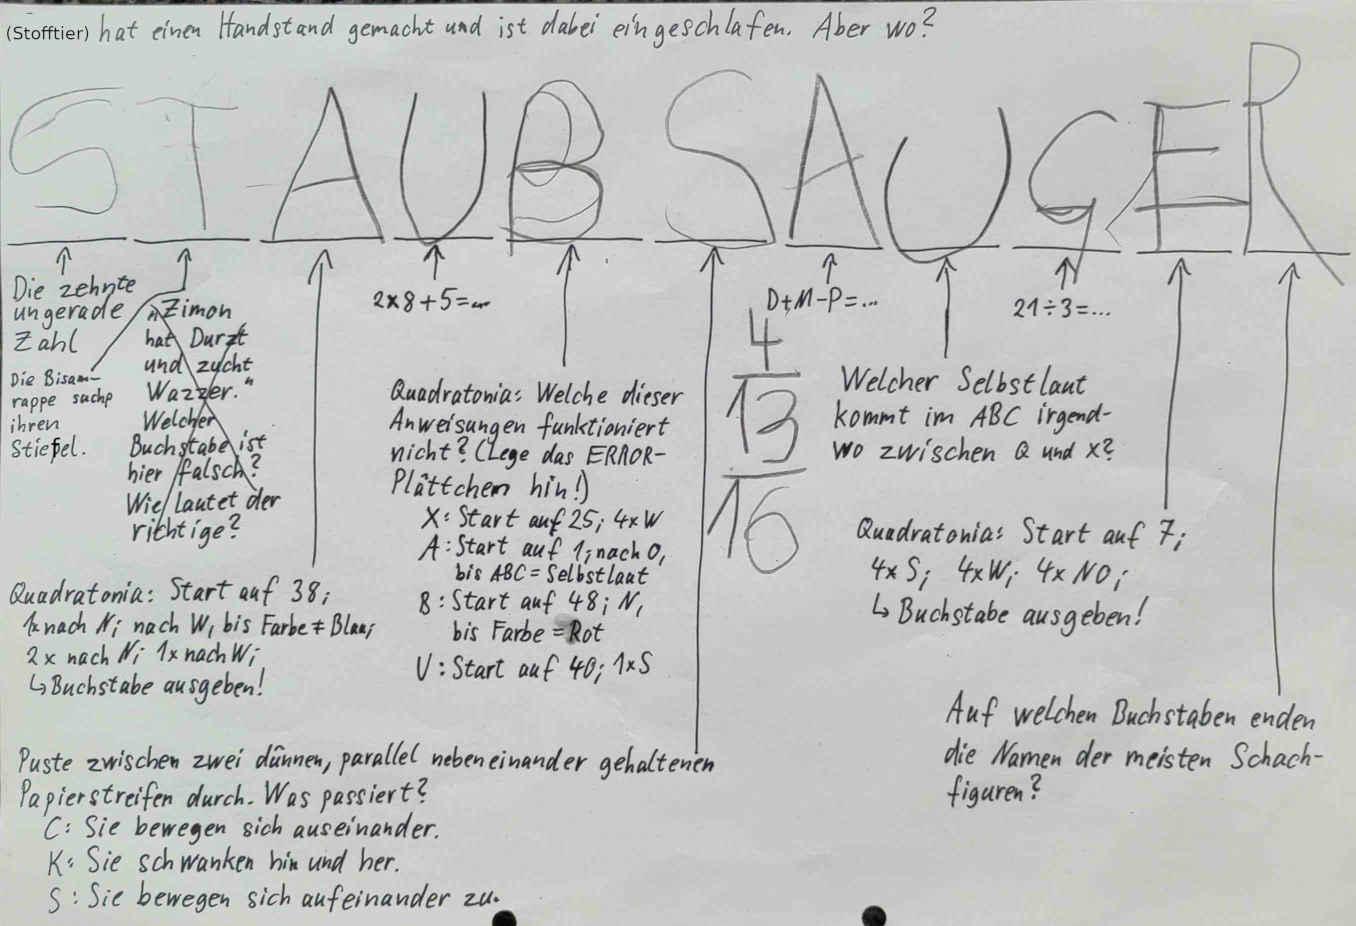 (Stofftier) hat einen Handstand gemacht und ist dabei eingeschlafen. Aber wo?
STAUBSAUGER
Die zehnte
ungerade
Zahl
Die Bisam-
rappe suchp
ihren
Stiefel.
"Zimon
hat Durzt
und zucht
Wazzer."
Welcher
Buchstabe ist
hier falsch?
Wie lautet der
richtige?
Quadratonia: Start auf 38;
1x nach N; nach W, bis Farbe ≠ Blau;
2x nach N; 1x nach W;
↳ Buchstabe ausgeben!
2×8+5=...
Quadratonia: Welche dieser
Anweisungen funktioniert
nicht? (Lege das ERROR-
Plättchen hin!)
X: Start auf 25; 4xW
A: Start auf 1; nach O,
bis ABC = Selbstlaut
B: Start auf 48; N,
bis Farbe = Rot
U: Start auf 40; 1xS
Puste zwischen zwei dünnen, parallel nebeneinander gehaltenen
Papierstreifen durch. Was passiert?
C: Sie bewegen sich auseinander.
K: Sie schwanken hin und her.
S: Sie bewegen sich aufeinander zu.
D+M-P=...
4
13
16
Welcher Selbstlaut
kommt im ABC irgend-
wo zwischen Q und X?
21÷3=...
Quadratonia: Start auf 7;
4xS; 4xW; 4xNO;
↳ Buchstabe ausgeben!
Auf welchen Buchstaben enden
die Namen der meisten Schach-
figuren?